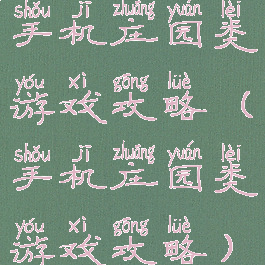 shǒu jī zhuāng yuán lèi
手机庄园类
yóu xì gōng lüè
游戏攻略（
shǒu jī zhuāng yuán lèi
手机庄园类
yóu xì gōng lüè
游戏攻略）